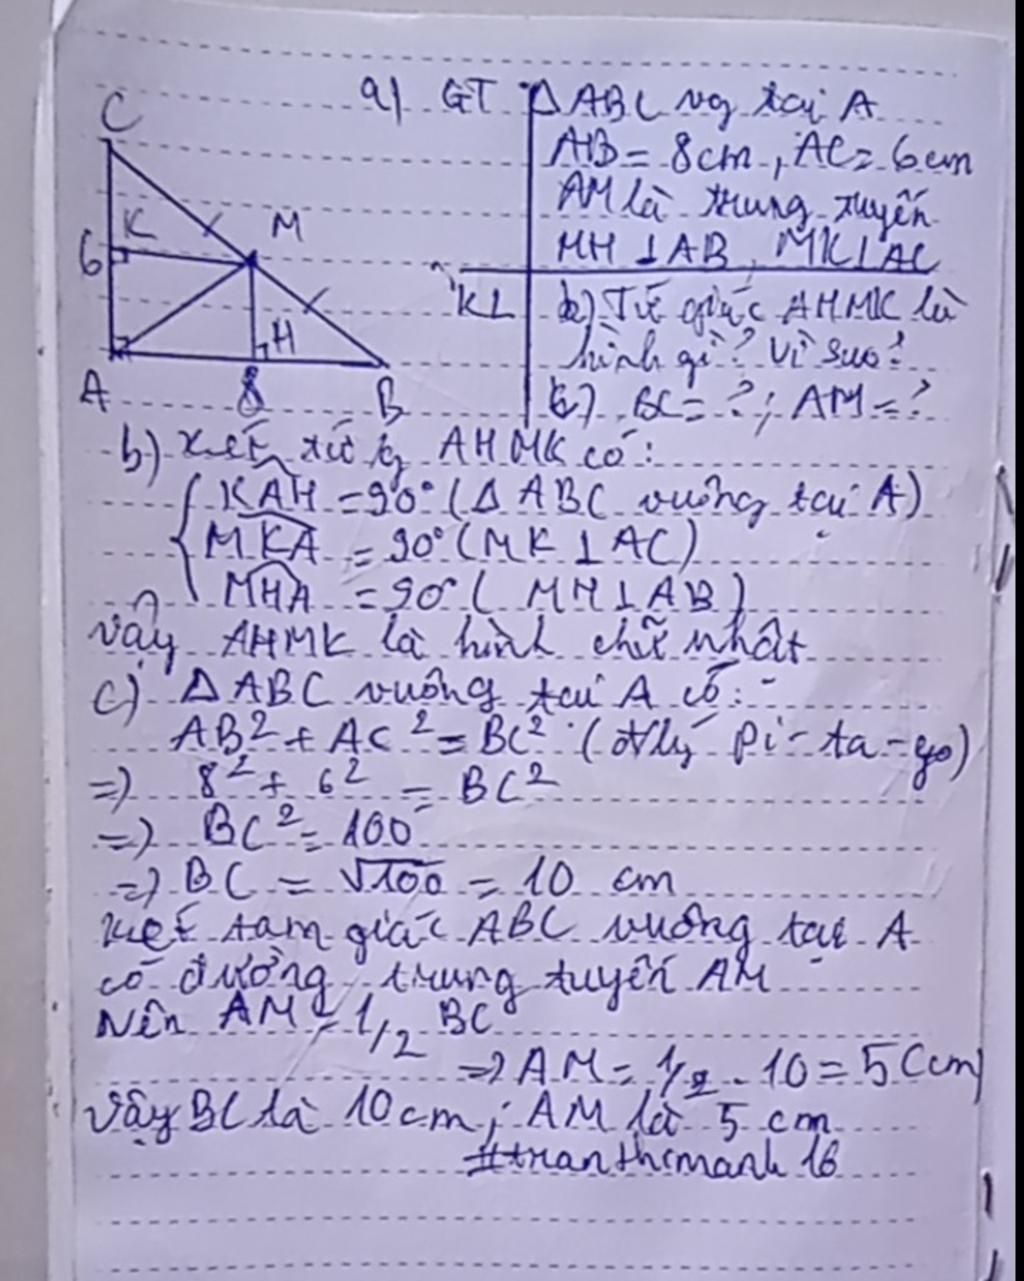 a) GT ΔABC vg tại A
AB = 8cm, AC = 6cm
AM là trung tuyến
MH ⊥ AB, MK ⊥ AC
KL b) Tứ giác AHMK là
hình gì? Vì sao?
c) BC = ?; AM = ?
C
K
M
6
H
A
8
B
b) Xét tứ g AHMK có:
KAH = 90° (Δ ABC vuông tại A)
MKA = 90° (MK ⊥ AC)
MHA = 90° (MH ⊥ AB)
Vậy AHMK là hình chữ nhật
c) Δ ABC vuông tại A có:
AB² + AC² = BC² (đ lý Pi-ta-go)
=) 8² + 6² = BC²
=) BC² = 100
=) BC = √100 = 10 cm
Xét tam giác ABC vuông tại A
có đường trung tuyến AM
Nên AM = 1/2 BC
=) AM = 1/2 . 10 = 5 (cm)
Vậy BC là 10cm; AM là 5 cm
#tranthimanh16